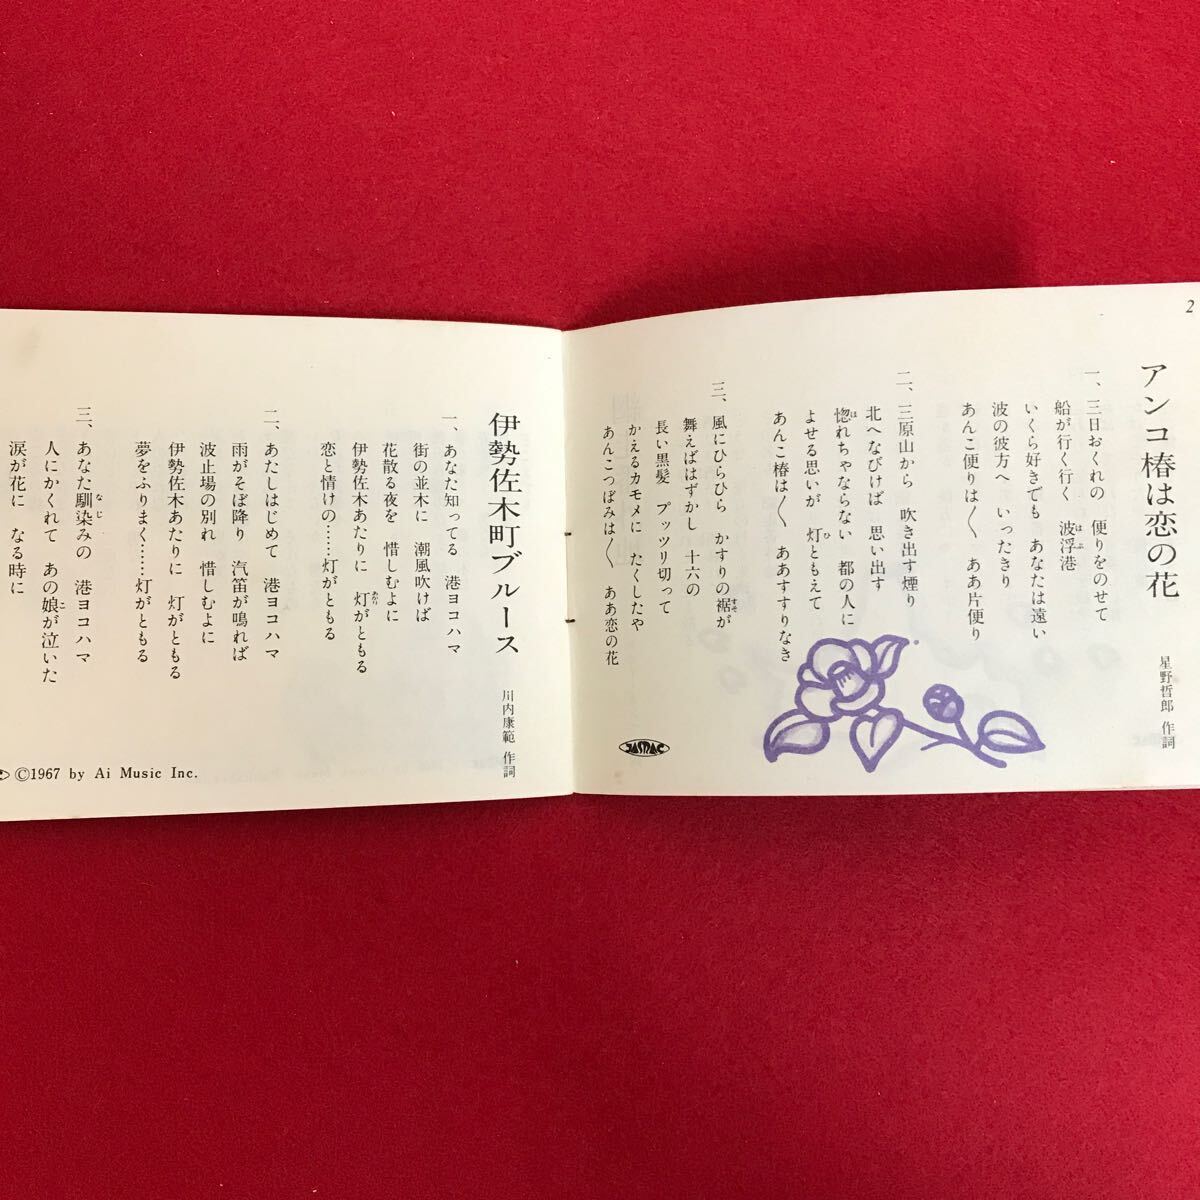 2
アンコ椿は恋の花
星野哲郎 作詞
一、三日おくれの 便りをのせて
船が行く行く 波浮港
はぶ
いくら好きでも あなたは遠い
波の彼方へ いったきり
あんこ便りは〱 ああ片便り
二、三原山から 吹き出す煙り
北へなびけば 思い出す
惚れちゃならない 都の人に
ほ
よせる思いが 灯ともえて
ひ
あんこ椿は〱 ああすすりなき
三、風にひらひら かすりの裾が
すそ
舞えばはずかし 十六の
長い黒髪 プッツリ切って
かえるカモメに たくしたや
あんこつぼみは〱 ああ恋の花
JASRAC
伊勢佐木町ブルース
川内康範 作詞
一、あなた知ってる 港ヨコハマ
街の並木に 潮風吹けば
花散る夜を 惜しむよに
伊勢佐木あたりに 灯がともる
あかり
恋と情けの……灯がともる
二、あたしはじめて 港ヨコハマ
雨がそぼ降り 汽笛が鳴れば
波止場の別れ 惜しむよに
伊勢佐木あたりに 灯がともる
夢をふりまく……灯がともる
三、あなた馴染みの 港ヨコハマ
なじ
人にかくれて あの娘が泣いた
こ
涙が花に なる時に
©1967 by Ai Music Inc.